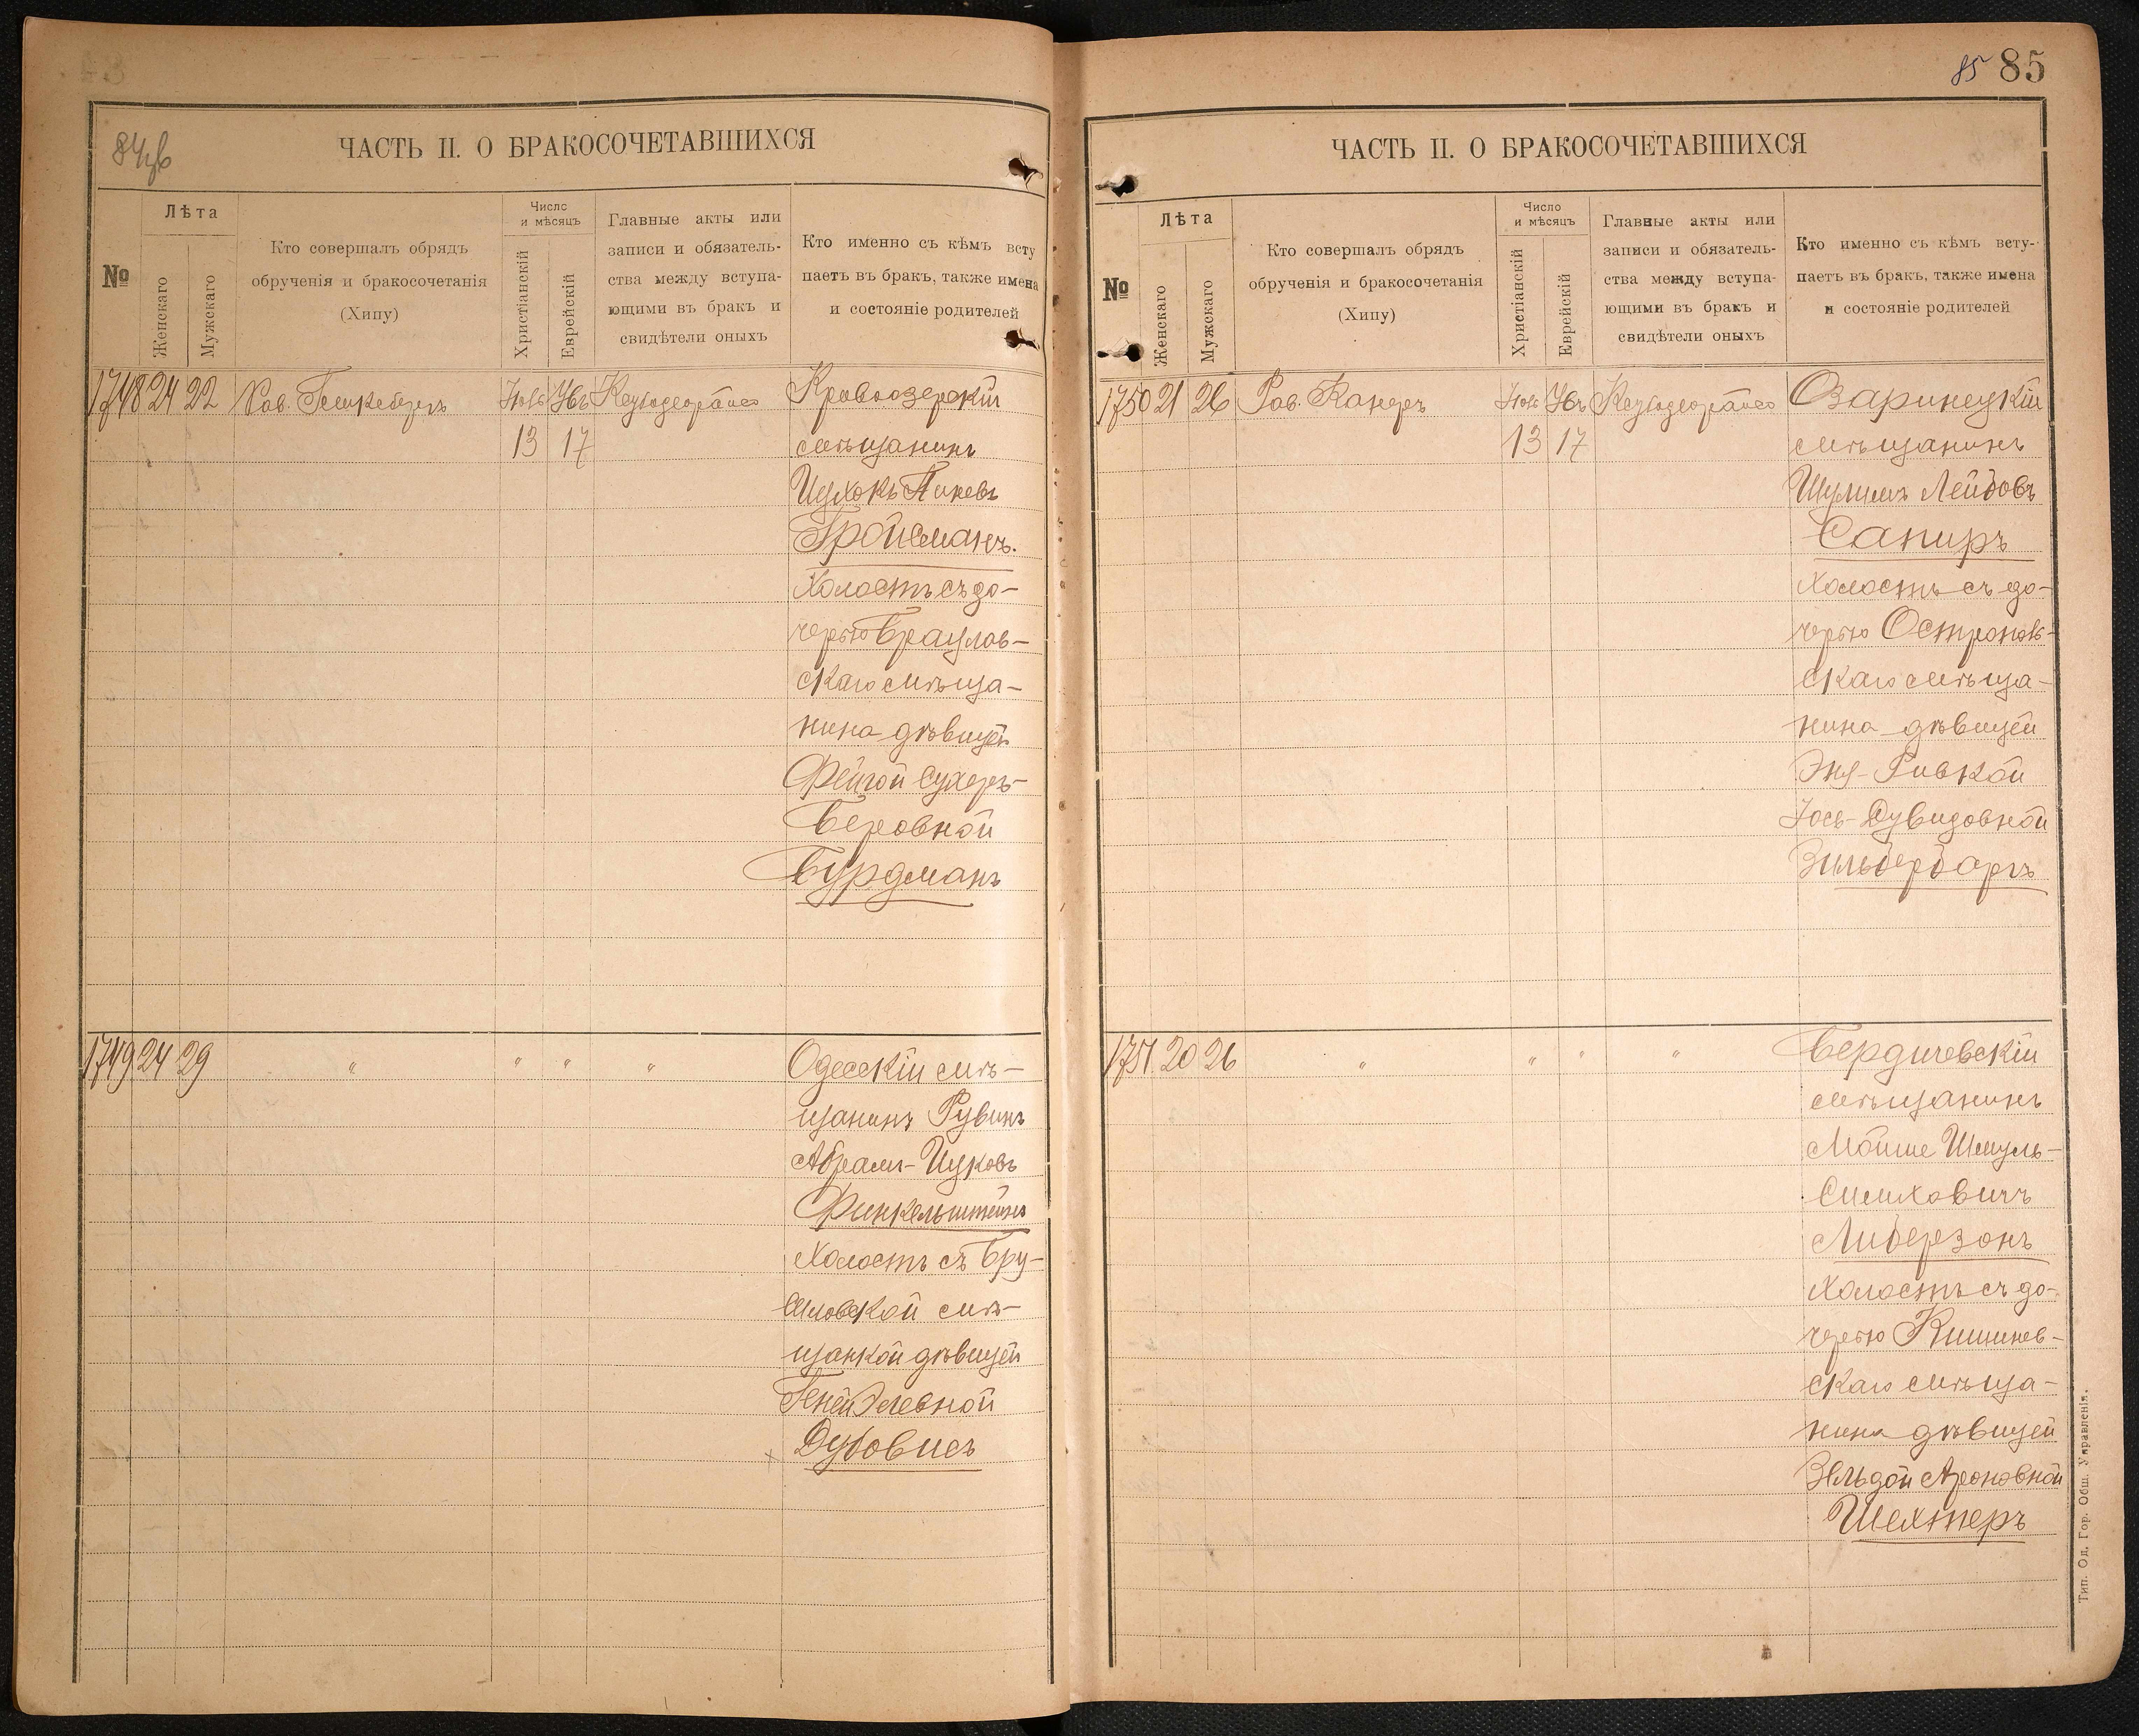 84 об
ЧАСТЬ II. О БРАКОСОЧЕТАВШИХСЯ
№
Лѣта
Женскаго
Мужскаго
Кто совершалъ обрядъ
обрученія и бракосочетанія
(Хипу)
Число
и мѣсяцъ
Христіанскій
Еврейскій
Главные акты или
записи и обязатель-
ства между вступа-
ющими въ бракъ и
свидѣтели оныхъ
Кто именно съ кѣмъ всту
паетъ въ бракъ, также имена
и состояніе родителей
1748 24 22 Рав. Кривоозерскій
13 17 мѣщанинъ
Ицхокъ Пиневъ
Гройсманъ.
Холостъ съ до-
черью Браилов-
скаго мѣща-
нина дѣвицей
Фейгой Сухеръ-
Беровной
Бурдманъ
1749 24 29 " " " " Одесскій мѣ-
щанинъ Рувинъ
Абрамъ-Ицковъ
Финкельштейнъ
Холостъ съ Бру-
силовской мѣ-
щанкой дѣвицей
Геней Элевной
Дубовисъ
85 85
ЧАСТЬ II. О БРАКОСОЧЕТАВШИХСЯ
№
Лѣта
Женскаго
Мужскаго
Кто совершалъ обрядъ
обрученія и бракосочетанія
(Хипу)
Число
и мѣсяцъ
Христіанскій
Еврейскій
Главные акты или
записи и обязатель-
ства между вступа-
ющими въ бракъ и
свидѣтели оныхъ
Кто именно съ кѣмъ всту-
паетъ въ бракъ, также имена
и состояніе родителей
1750 21 26 Рав. Канеръ Озаринецкій
13 17 мѣщанинъ
Шулимъ Лейбовъ
Сапиръ
Холостъ съ до-
черью
скаго мѣща-
нина дѣвицей
Эня-Ривкой
Іось-Дувидовной
Зильбербаргъ
1751 20 26 " " " " Бердичевскій
мѣщанинъ
Мойше Шмуль-
Симховичъ
Либерзонъ
Холостъ съ до-
черью Кишинев-
скаго мѣща-
нина дѣвицей
Зельдой Ароновной
Шехтеръ
Тип. Од. Гор. Общ. Управленія.